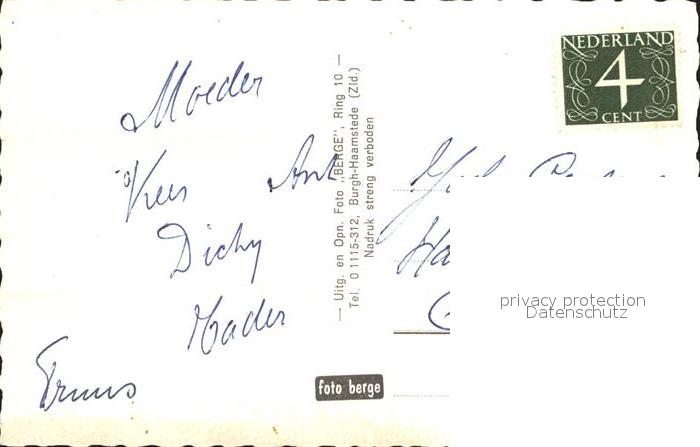 NEDERLAND
4
CENT
Moeder
Kees Ank
Dicky
Truus
— Uitg. en Opn. Foto „BERGE", Ring 10 —
Tel. 0 1115-312, Burgh-Haamstede (Zld.)
Nadruk streng verboden
foto berge
privacy protection
Datenschutz